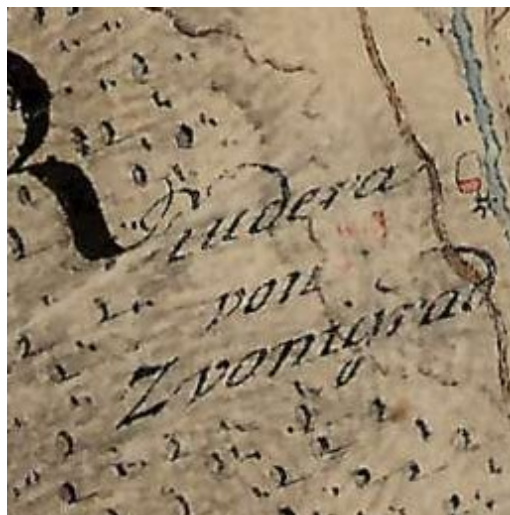 Rudera
von
Zvonigrad